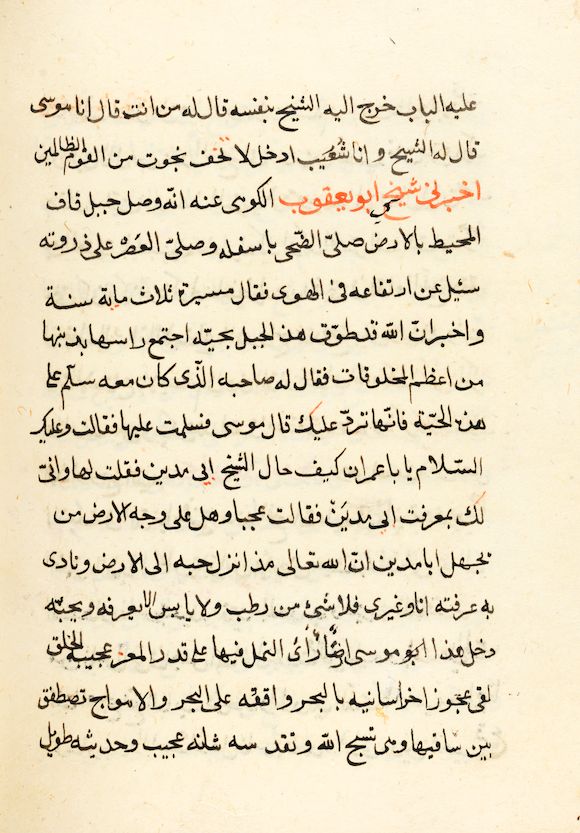 عليه الباب خرج اليه الشيخ بنفسه قال له من انت قال انا موسى
قال له الشيخ وانا شُعَيب ادخل لا تخف نجوت من القوم الظالمين
اخبرني شيخ ابو يعقوب الكومى عنه انّه وصل جبل قاف
المحيط بالارض صلىّ الضّحى باسفله وصلىّ العَصْر على ذروته
سئيل عن ارتفاعه فى الهوى فقال مسيرة ثلاث ماية سنة
واخبر انّ الله قد طوّق هذا الجبل بحيّه اجتمع راسها بذنبها
من اعظم المخلوقات فقال له صاحبه الّذى كان معه سلّم على
هذه الحيّة فانّها تردّ عليك قال موسى فسلمت عليها فقالت وعليك
السّلام يا با عمران كيف حال الشيخ ابي مدين فقلت لها وانىّ
لك بمعرفت ابي مديَن فقالت عجبا وهل على وجه الارض من
يجهل ابا مدين انّ الله تعالى مذ انزل حبه الى الارض ونادى
به عرفته انا وغيرى فلا شئ من رطب ولا يابس الا يعرفه ويحبّه
دخل هذا ابو موسى ارضًا رأى النمل فيها على قدر المعز عجيبة الخلق
لقى عجوز اخراسانيه بالبحر واقفه على البحر والامواج تصطفق
بين ساقيها وهى تسبح الله وتقدسه شانه عجيب وحديثه طويل